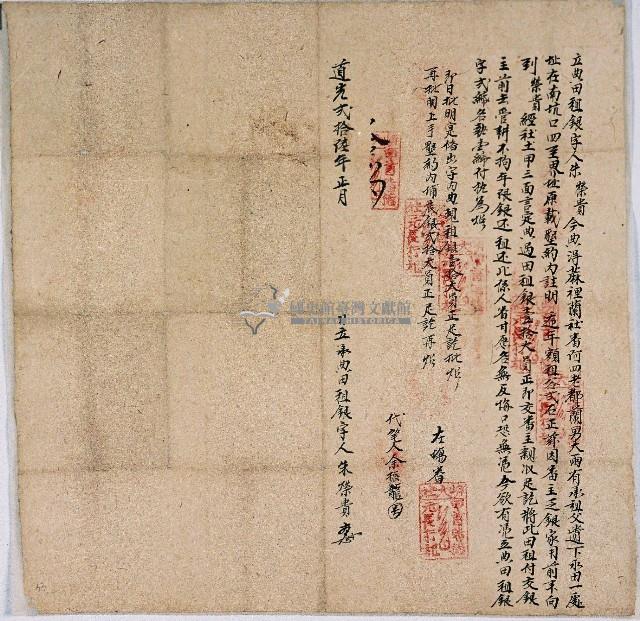 立典田租銀字人朱榮貴今典得蔴裡蘭社番阿四老都蘭男大雨有承祖父遺下水田一處
址在南坑口四至界址原載墾約內註明遞年額租谷弍石正茲因番主乏銀家用前來向
到榮貴經社土甲三面言定典過田租銀壹拾大員正即交番主親收足訖將此田租付交銀
主前去管耕不拘年限銀還租還此係人番甘愿各無反悔口恐無憑今欲有憑立典田租銀
字弍紙各執壹紙付執為炤
即日批明見借出字內典過租銀壹拾大員正足訖批炤
再批明上手墾約內佛銀弍拾大員正足訖再炤
在場番
代筆人余振龍
日立承典田租銀字人朱榮貴
道光弍拾陸年正月
國史館臺灣文獻館
TAIWAN HISTORICA